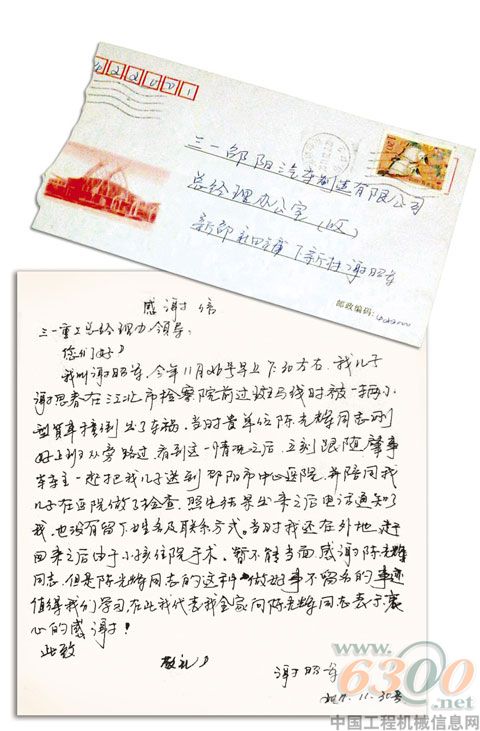 422001
三一邵阳汽车制造有限公司
总经理办公室(收)
新邵
下新村谢昭
邮政编码:
感谢信
三一重工总经理办领导:
您们好!
我叫谢昭,今年11月26号早上7:30方右,我儿子
谢思春在江北市检察院前过斑马线时被一辆小
型货车撞倒出了车祸,当时贵单位陈光辉同志刚
好上班从旁路过,看到这一情况之后,立刻跟随肇事
车车主一起把我儿子送到邵阳市中心医院,并陪同我
儿子在医院做了检查,照片结果出来之后电话通知了
我,也没有留下姓名及联系方式。当时我还在外地,赶
回来之后由于小孩住院手术,暂不能当面感谢陈光辉
同志,但是陈光辉同志的这种做好事不留名的事迹
值得我们学习在此我代表我全家向陈光辉同志表示衷
心的感谢!
此致
敬礼!
谢昭
11.30号
www.6300.net
中国工程机械信息网